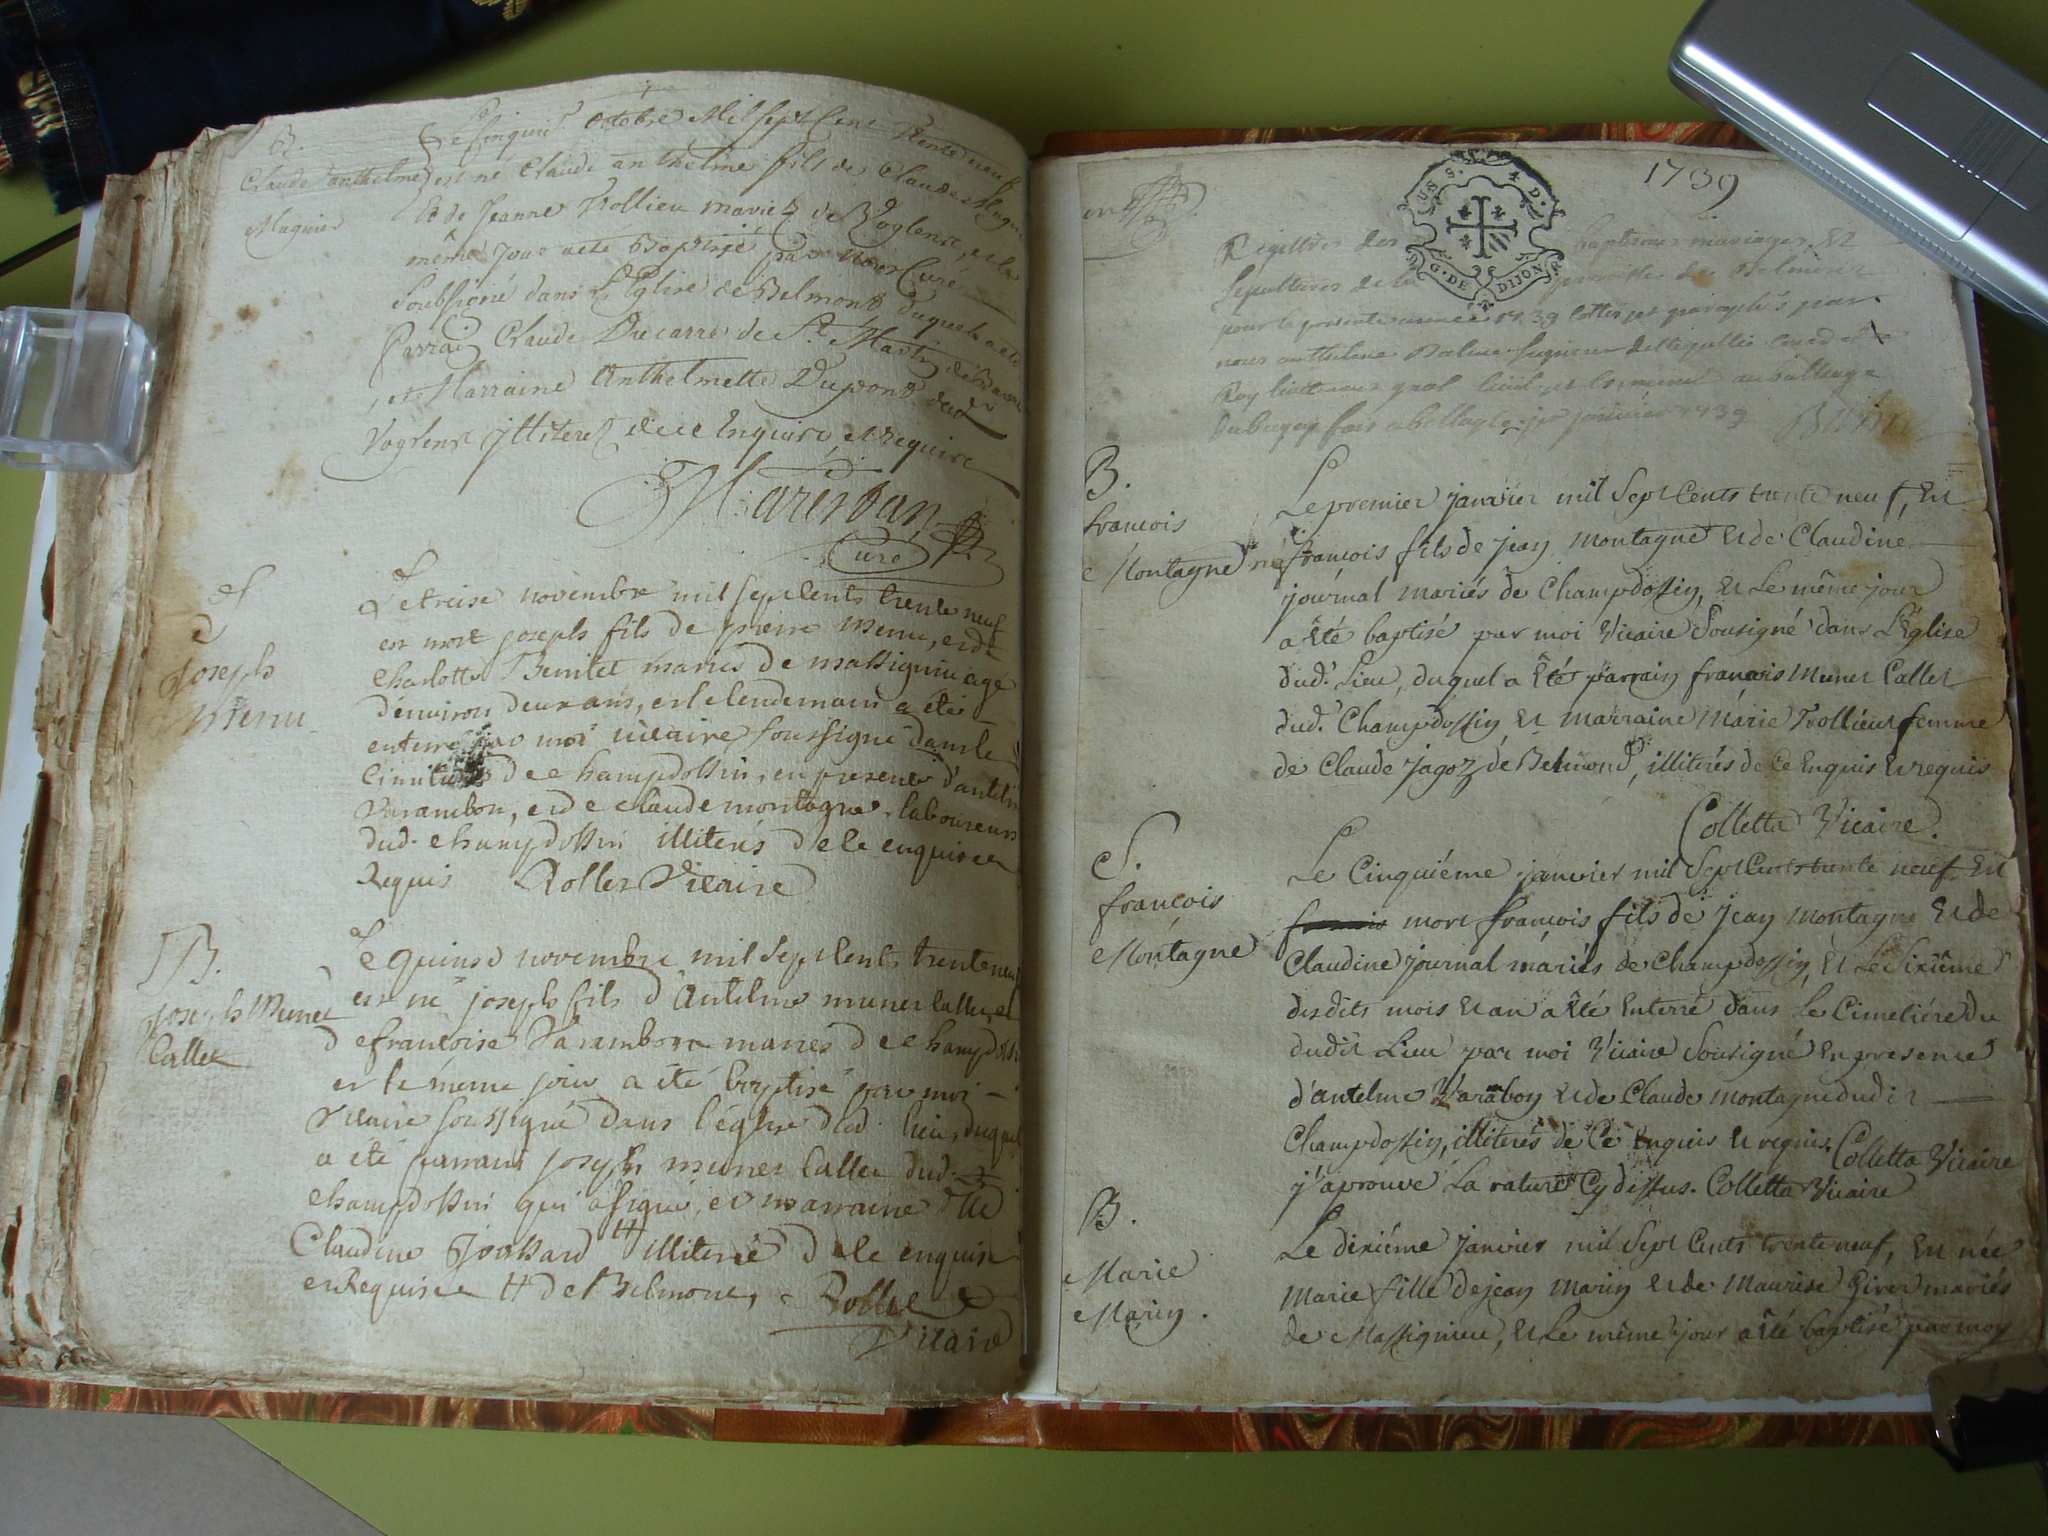 B.
Claude anthelme
Maguier
Le cinquie octobre Mil sept Cent Trente neuf
est né Claude anthelme fils de Claude Maguier
Et de Jeanne Trollieu mariez de Voglens, et le
même Jour a eté Baptisé par Nous Curé
soubsigné dans L'Eglise de Belmont duquel a eté
Parrain Claude Ducarre de St. Martin de
et Marraine Anthelmette Dupont dud
Voglens illiteréz de ce Enquis et requis
Curé
S
Joseph
Menu
Le treise novembre mil sept cents trente neuf
est mort joseph fils de pierre menu, et de
charlotte mariés de massignieu agé
d'environ deux ans, et le lendemain a été
enterré par moi vicaire soussigné dans le
cimitiere de champdossin, en presence d'antelme
Varambon, et de claude montagne, laboureurs
dud. champdossin illiterés de ce enquis et
Requis Rollet Vicaire
B.
joseph Munet
Callet
Le quinse novembre mil sept cents trente neuf
est né joseph fils d'Antelme munet callet, et
de francoise Varambon mariés de champdossin
et le même jour a été baptisé par moi
Vicaire soussigné dans l'église dud. lieu, duquel
a été parrain joseph munet callet dud.
champdossin qui a signé, et marraine dlle
Claudine Joussard # illiterée de ce enquise
et Requise # de Belmont, Rollet
Vicaire
1739
USS. 4 D.
G. DE DIJON
Registres des baptemes mariages, Et
sepultures de la parroisse de Belmont
pour la presente année 1739 cottés et paraphés par
nous anthelme Balme seigneur de conser du
Roy lieutenant gnal civil et criminel au balliage
du bugey fait a belley le jr janvier 1739
B.
francois
Montagne
Le premier janvier mil Sept Cents trente neuf, Est
né francois fils de jean montagne Et de Claudine
journal mariés de Champdossin, Et Le même jour
a Eté baptisé par moi Vicaire Sousigné dans L'Eglise
dud. Lieu, duquel a Eté parrain francois Munet Callet
dud. Champdossin, Et marraine Marie Trollieur femme
de Claude jagoz de Belmond, illiterés de Ce Enquis Et requis
Colletta Vicaire.
S.
francois
Montagne
Le Cinquiéme janvier mil Sept Cents trente neuf, Est
francois mort francois fils de jean montagne Et de
Claudine journal mariés de Champdossin, Et Le Sixiême
desdits mois Et an a Eté Enterré dans Le Cimetiére du
dudit Lieu par moi Vicaire Sousigné En presence
d'antelme Varabon Et de Claude montagne dudit
Champdossin, illiterés de Ce Enquis Et requis. Colletta Vicaire
j'aprouve La rature Cy dessus. Colletta Vicaire
B.
Marie
Marin.
Le dixiéme janvier mil Sept Cents trente neuf, Est née
Marie fille de jean Marin Et de Maurise Givet mariés
de Massignieu, Et Le même jour a Eté baptisé par moy